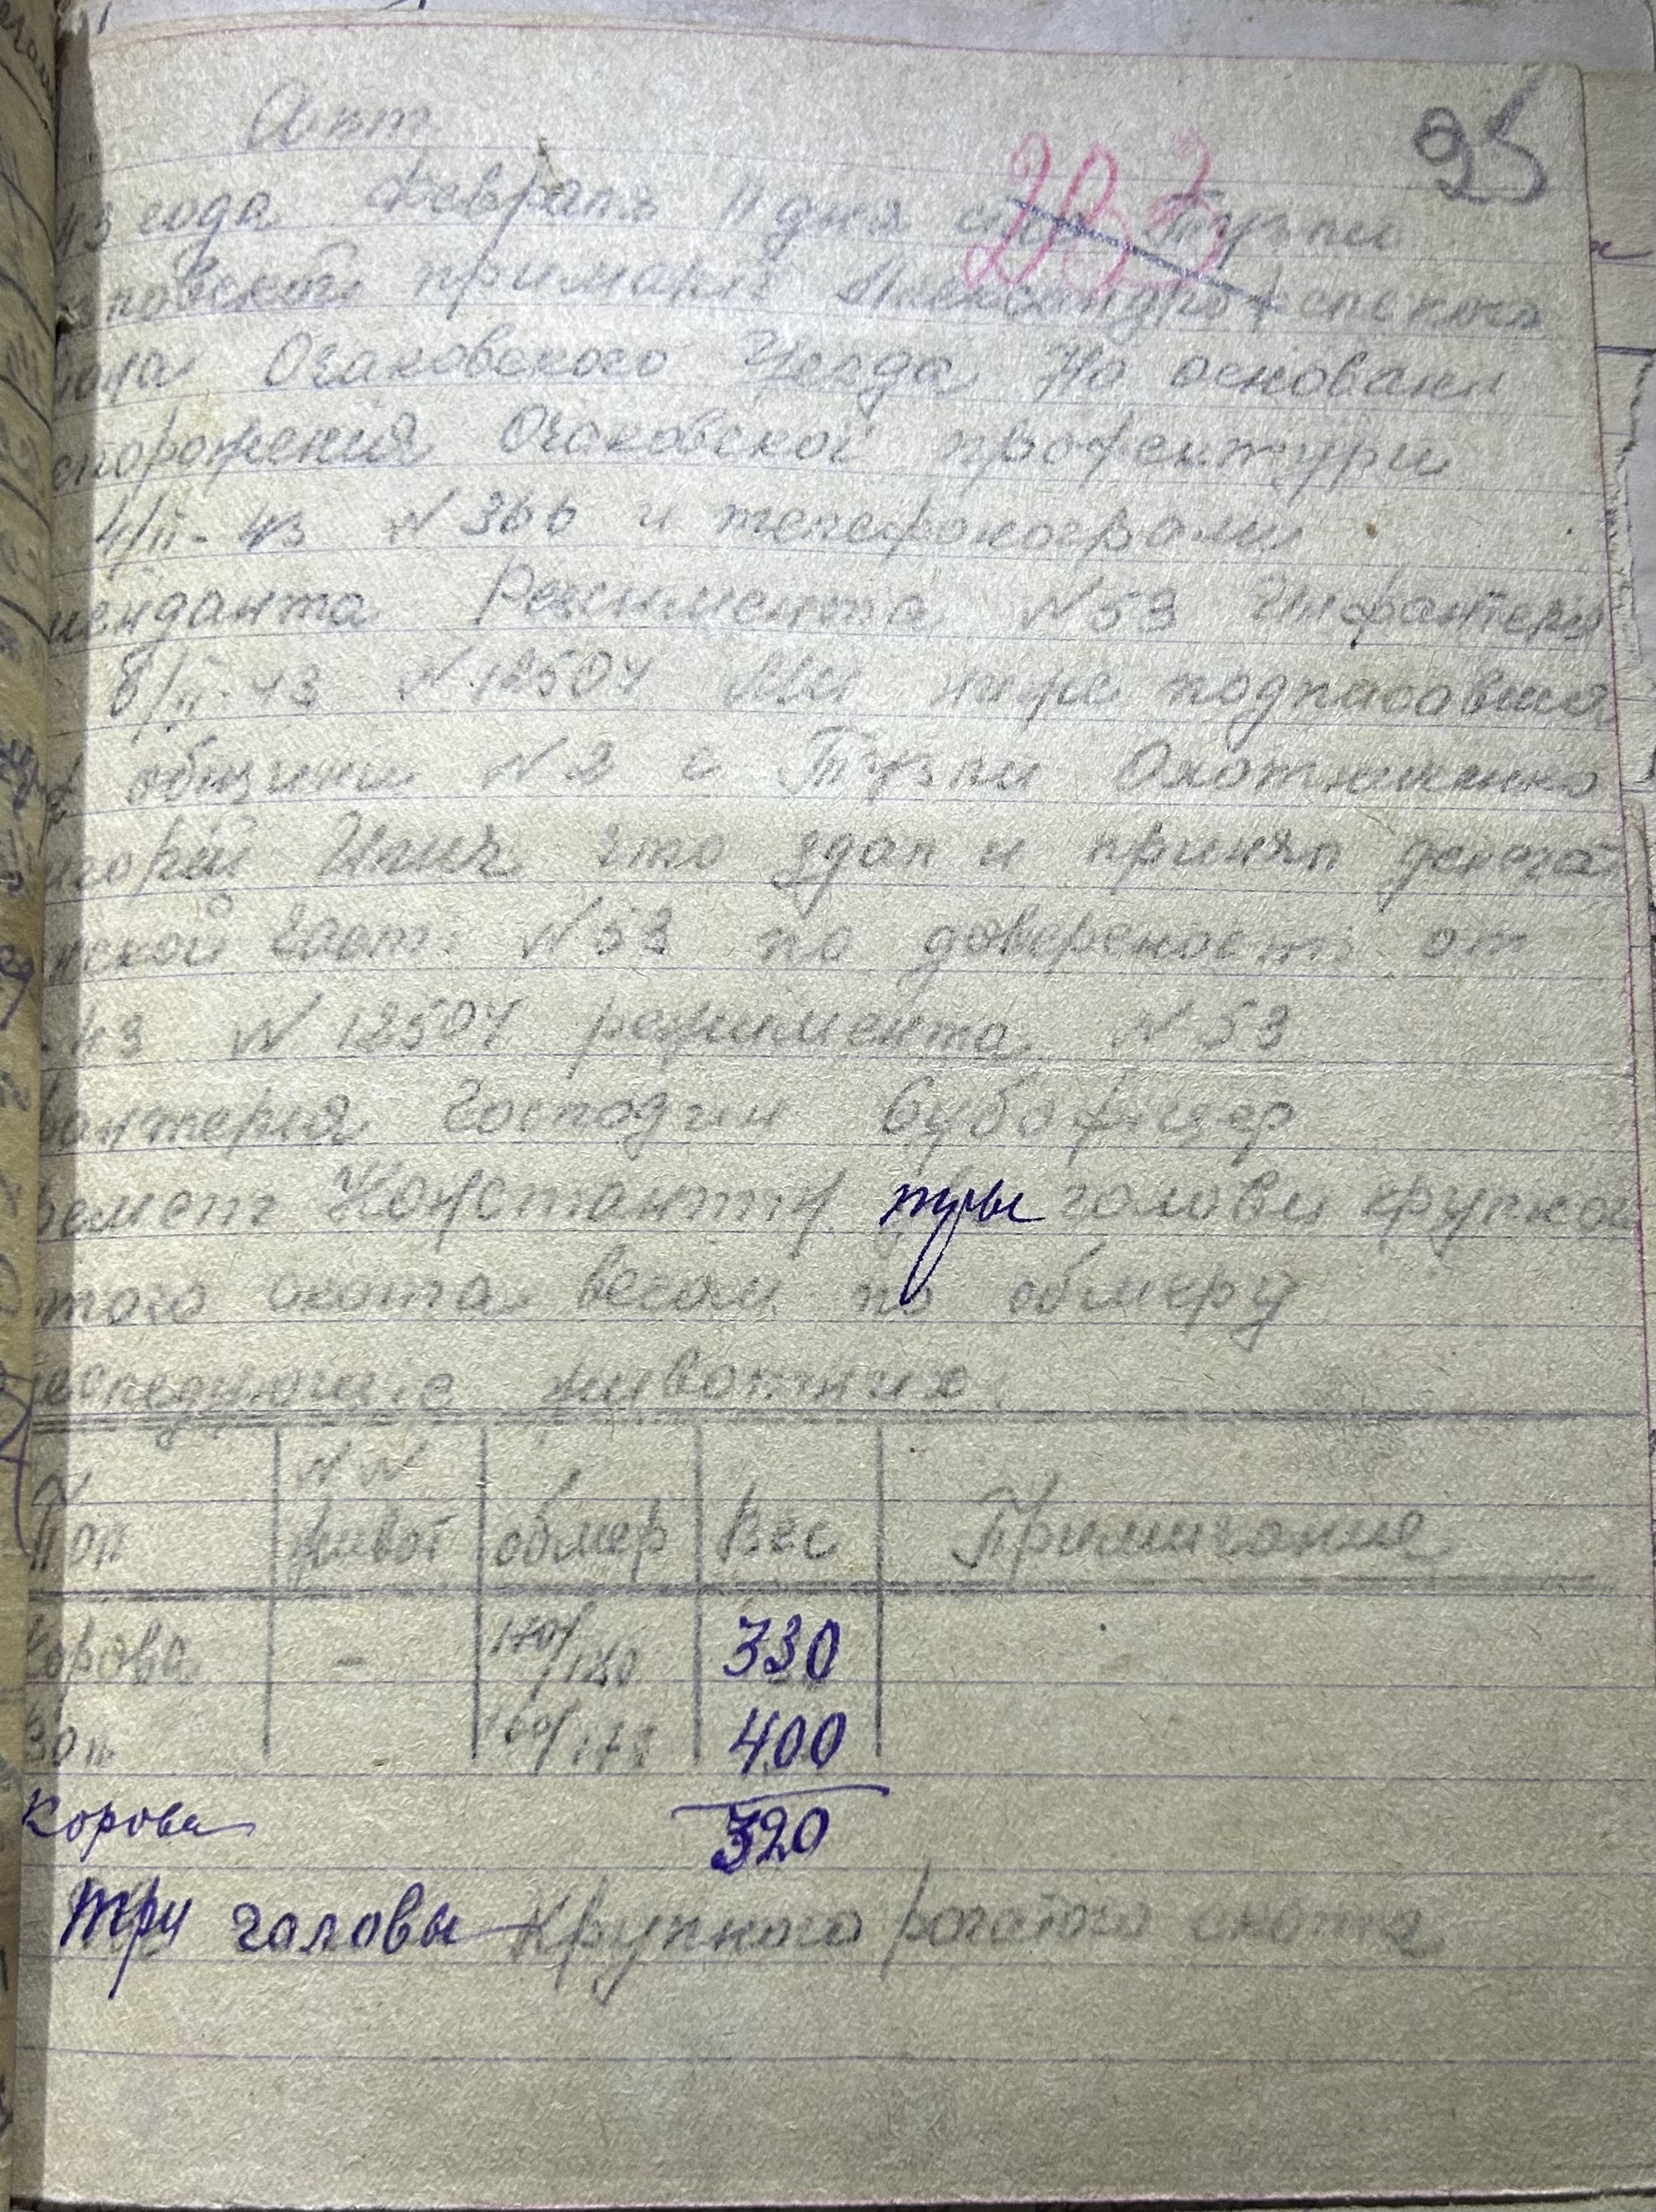 Акт
95
283
43 года февраля 11 дня с. Тузли
повской примарiї Александрофспского
йона Очаковского Уезда На основани
споряжения Очаковской профектури
4/II-43 N 366 и телефонограми
менданта Режимента N 53 Инфантерия
8/II-43 N 12507 Ми ниже подписавшия
общини N 2 с Тузли Охотниченко
игорий Илич что здал и принял делегат
нской част. N 53 по довереност от
-43 N 12507 режимента N 53
фантерия Господин Субофицер
Константин тры голови крупног
того скота весом по обмеру
еследующие животних
Пол | N N живот | обмер | Вес | Примичание
Корова | - | 170/180 | 330
Вол | 160/178 | 400
Корова 320
три головы Крупного рогатого скота